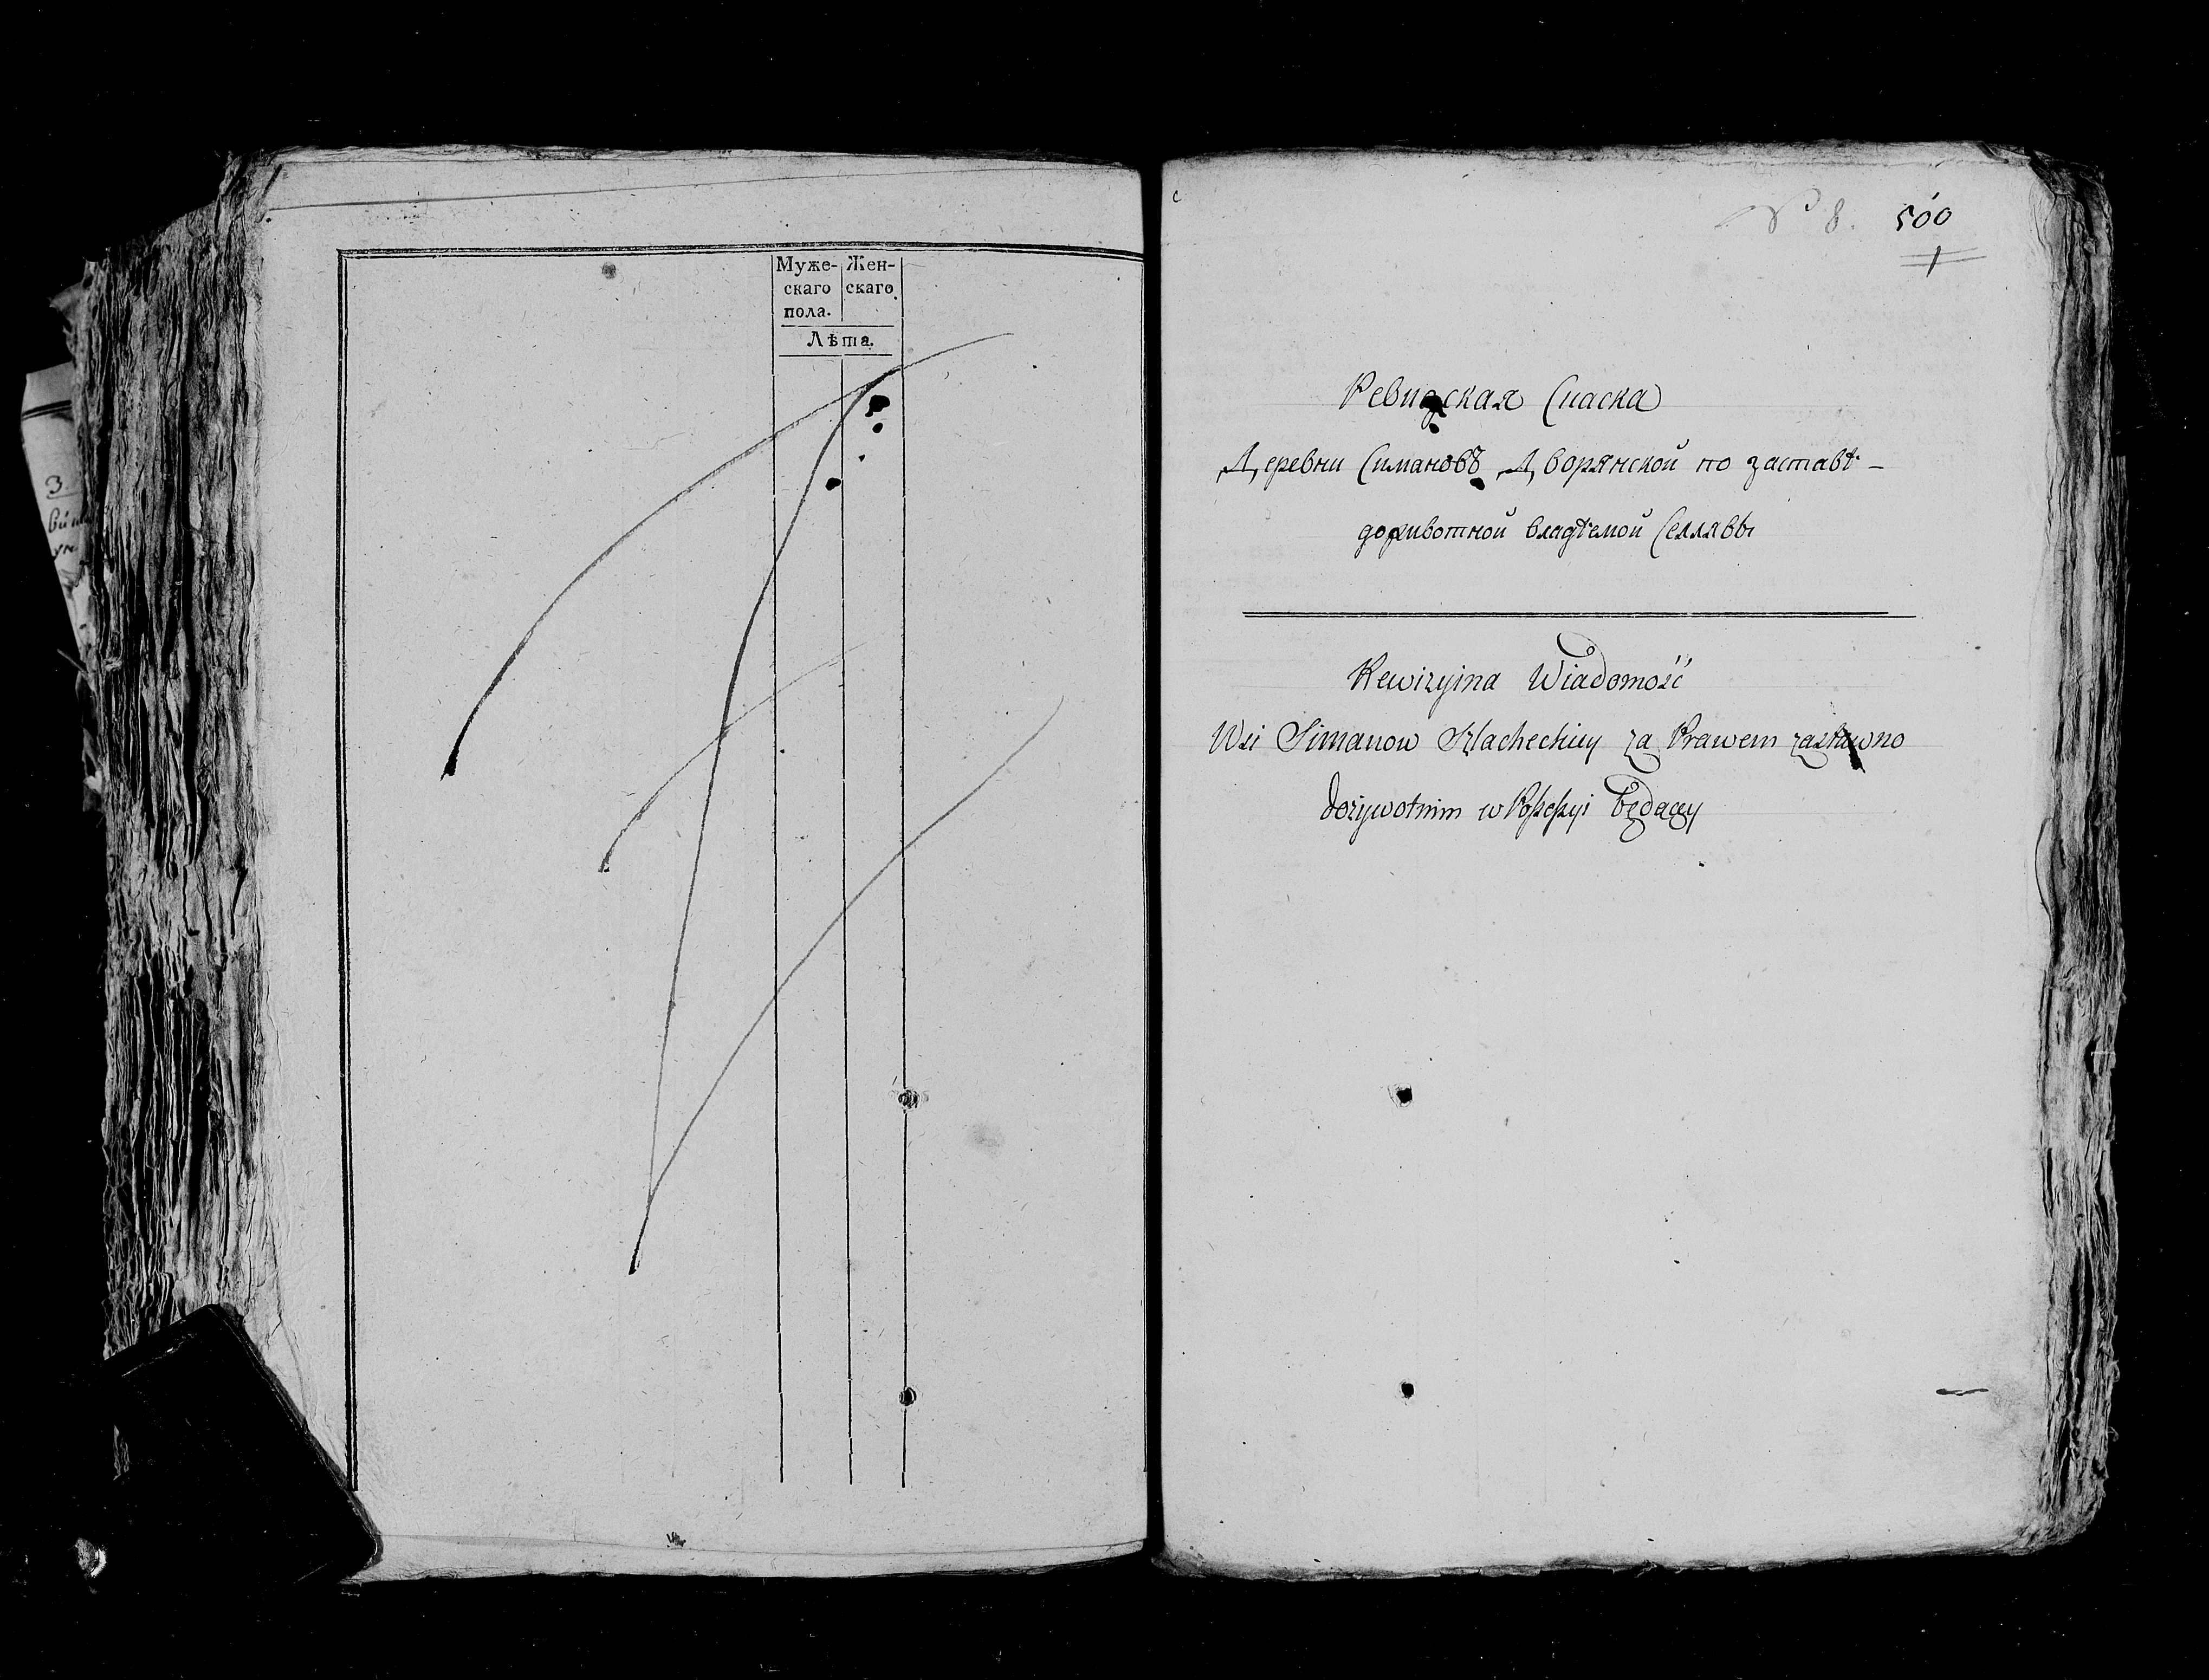 Муже- Жен-
скаго скаго
пола.
Лѣта.
3
№ 8. 500
1
Ревизская Сказка
Деревни Симановъ Дворянской по заставѣ-
доживотной владѣемой Селлявы
Rewizyina Wiadomość
Wsi Simanow Szlacheckiey za Prawem zastawno
dożywotnim w Possessyi będącey